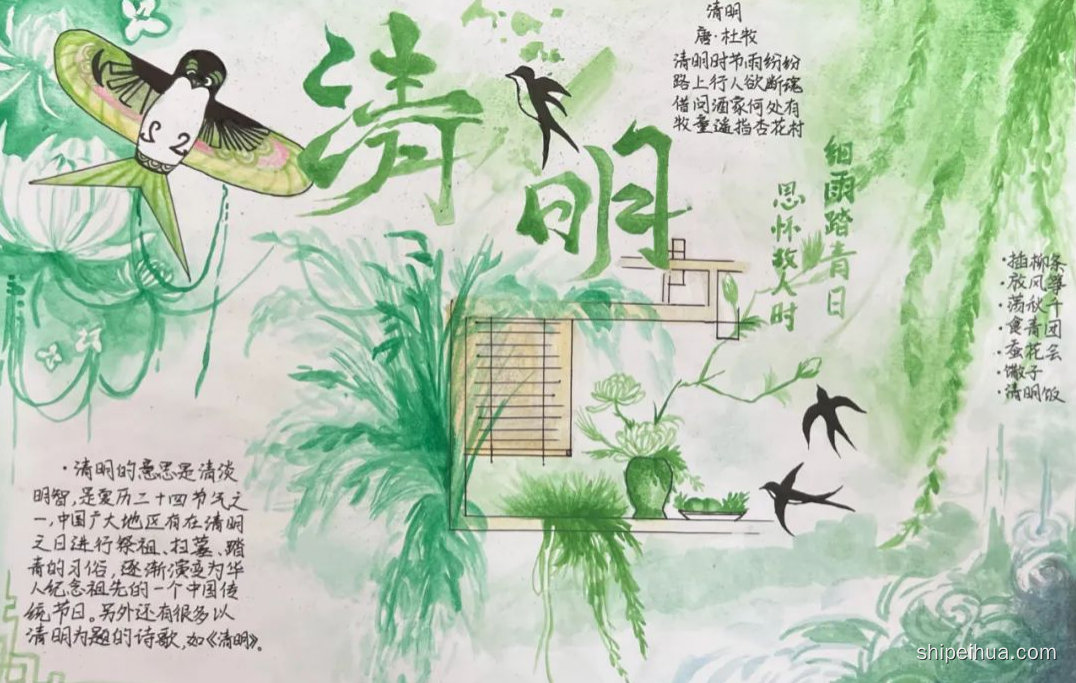 清明
清明
唐·杜牧
清明时节雨纷纷
路上行人欲断魂
借问酒家何处有
牧童遥指杏花村
细雨踏青日
思怀故人时
·插柳条
·放风筝
·荡秋千
·食青团
·蚕花会
·馓子
·清明饭
·清明的意思是清淡
明智,是农历二十四节气之
一,中国广大地区有在清明
之日进行祭祖、扫墓、踏
青的习俗,逐渐演变为华
人纪念祖先的一个中国传
统节日。另外还有很多以
清明为题的诗歌,如《清明》。
shipeihua.com